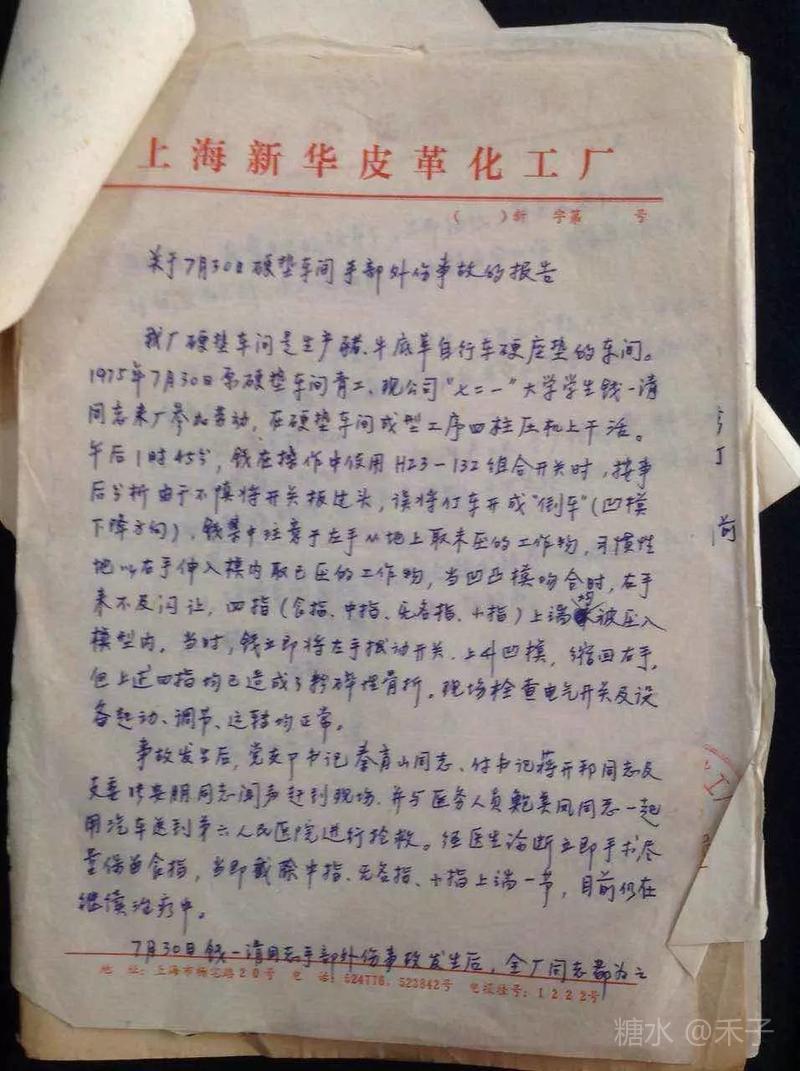 上海新华皮革化工厂
（　）新　字第　号
关于7月30日硬垫车间手部外伤事故的报告
我厂硬垫车间是生产猪、牛底革自行车硬座垫的车间。
1975年7月30日原硬垫车间青工、现公司“七二一”大学学生钱一清
同志来厂参加劳动，在硬垫车间成型工序四柱压机上干活。
午后1时45分，钱在操作中使用HZ3-132组合开关时，按事
后分析由于不慎将开关扳过头，误将行车开成“倒车”（凹模
下降方向），钱集中注意于左手从地上取未压的工作物，习惯性
地以右手伸入模内取已压的工作物，当凹凸模吻合时，右手
来不及闪让，四指（食指、中指、无名指、小指）上端均被压入
模型内，当时，钱立即将左手扳动开关，上升凹模，缩回右手，
但上述四指均已造成了粉碎性骨折。现场检查电气开关及设
备起动、调节、运转均正常。
事故发生后，党支部书记秦青山同志、付书记蒋开邦同志及
支委 同志闻声赶到现场，并与医务人员鲍美凤同志一起
用汽车送到第六人民医院进行抢救。经医生诊断立即手术尽
量保留食指，当即截除中指、无名指、小指上端一节，目前仍在
继续治疗中。
7月30日钱一清同志手部外伤事故发生后，全厂同志都为之
地 址：上海市 路20号 电 话：524776，523842号 电报挂号：1222号
糖水 @禾子